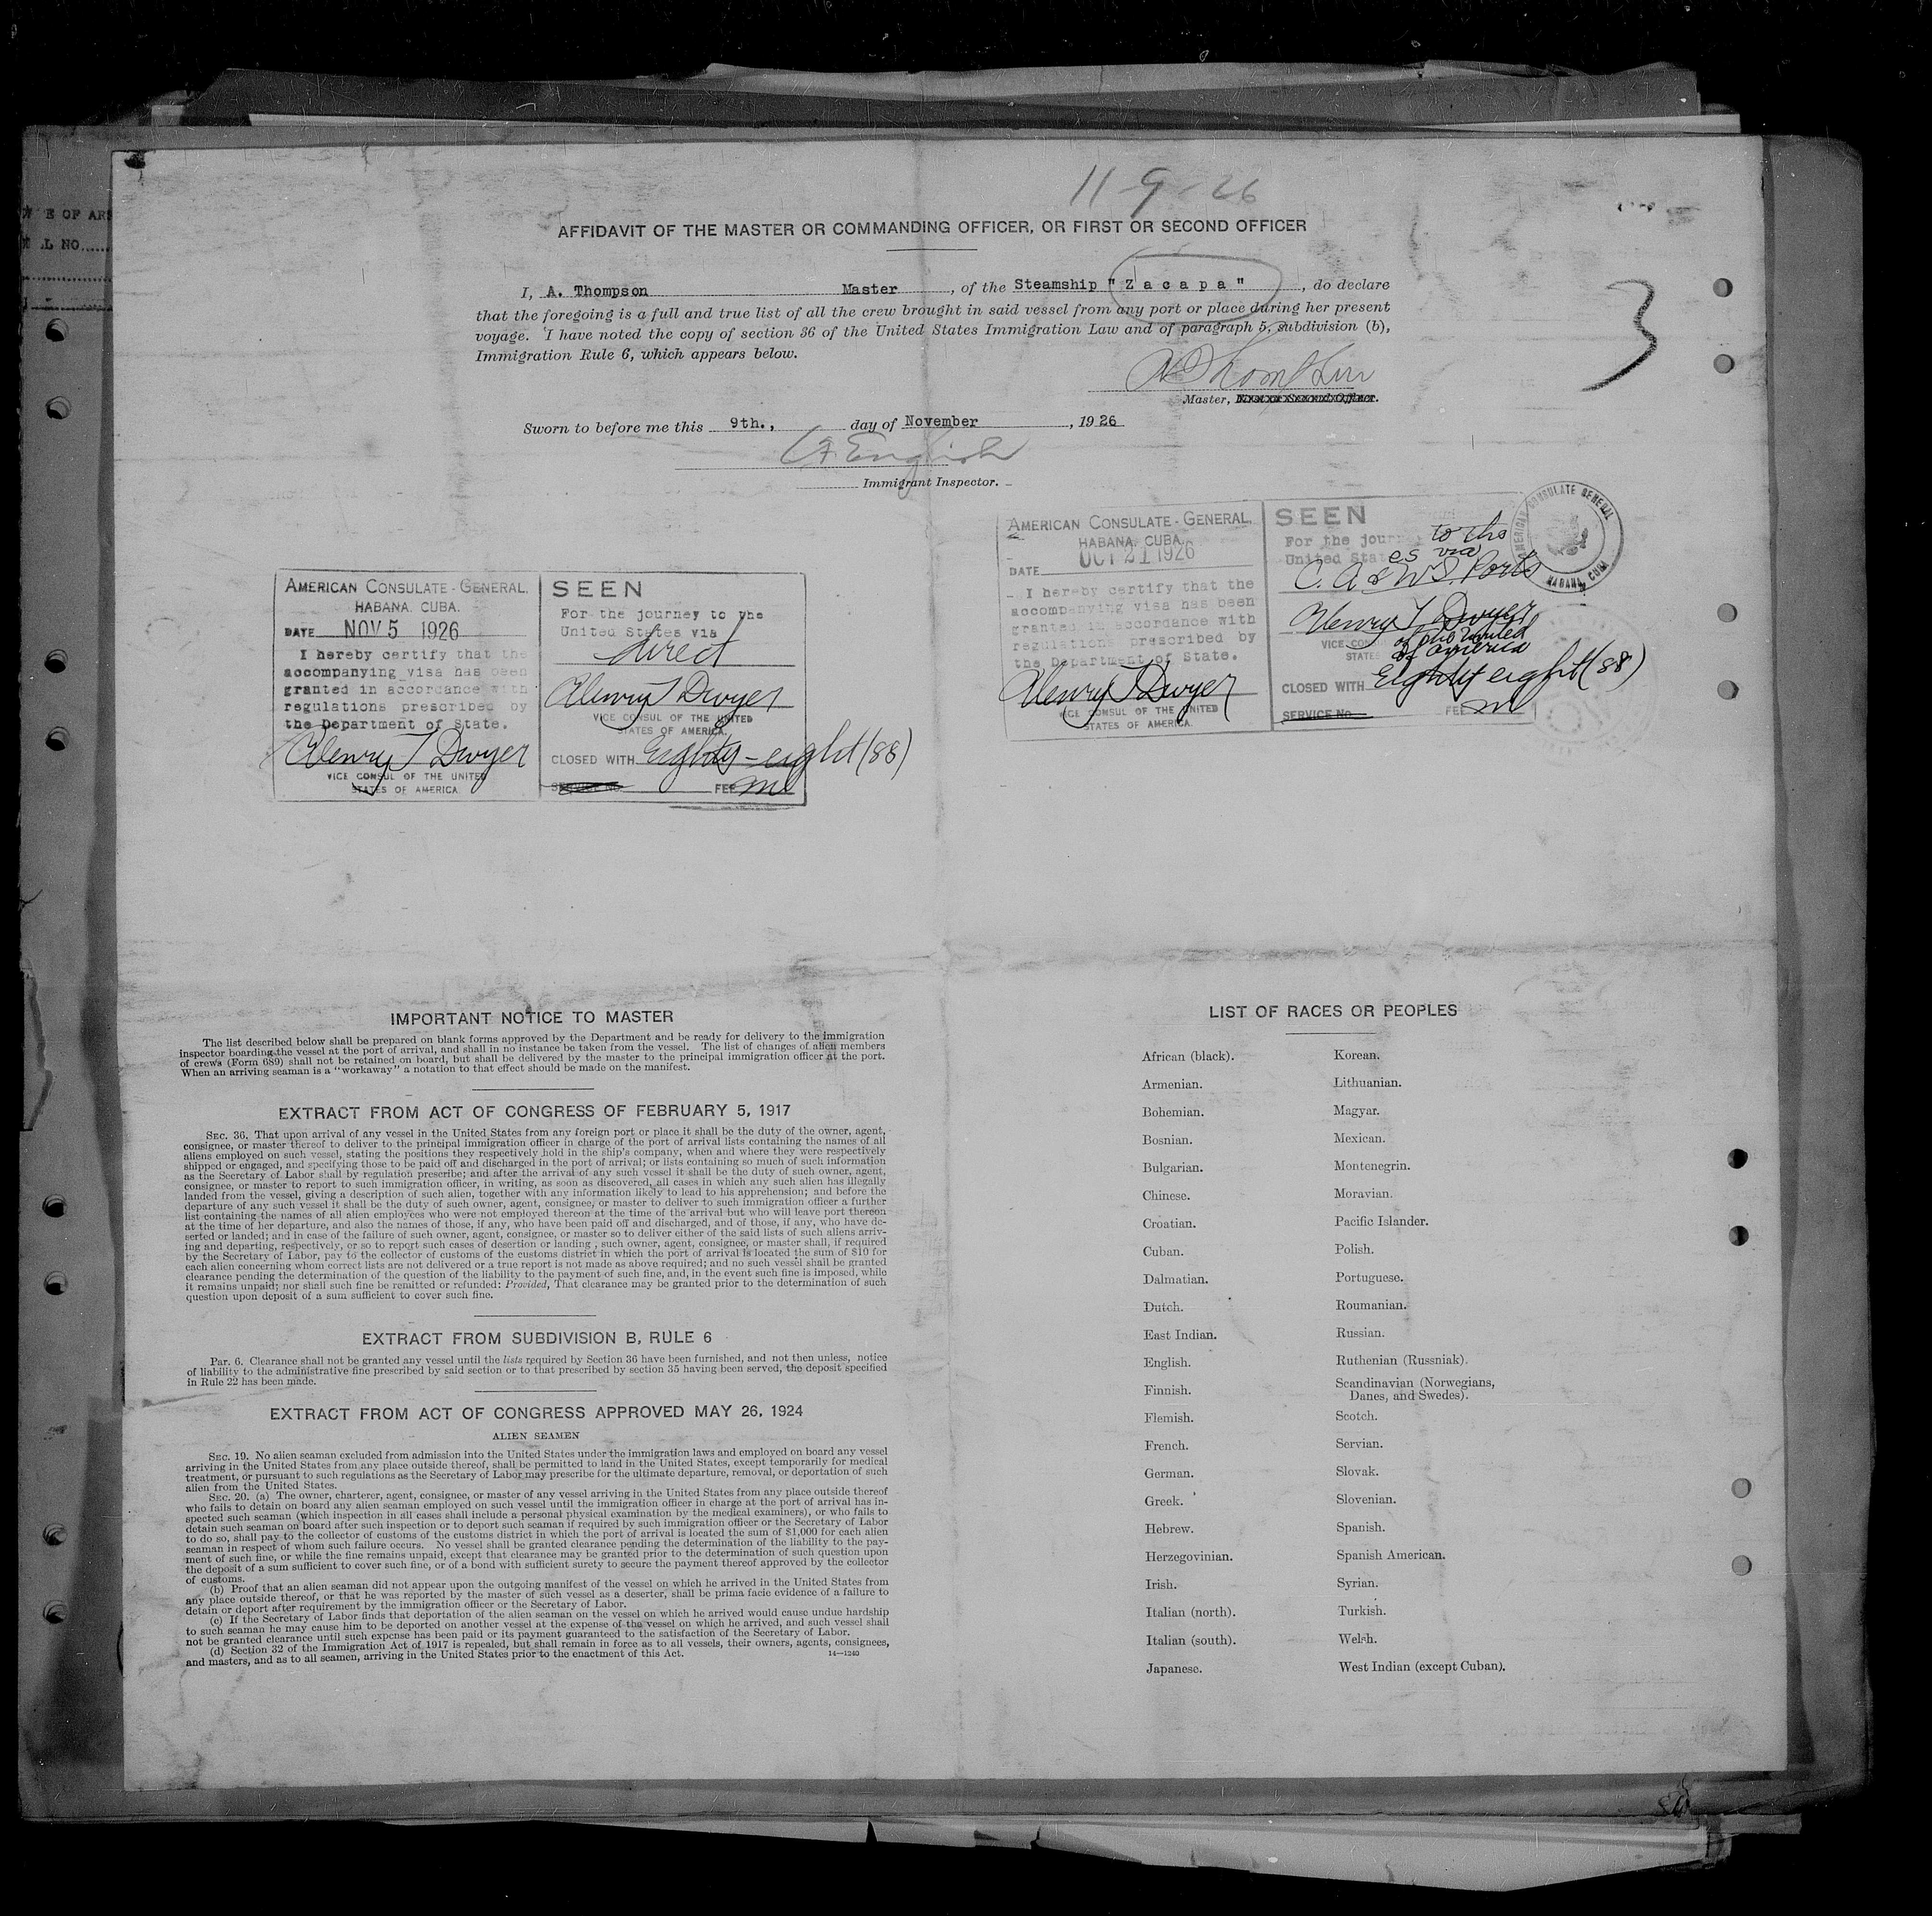 E OF ARR
L NO
11-9-26
AFFIDAVIT OF THE MASTER OR COMMANDING OFFICER, OR FIRST OR SECOND OFFICER
I, A. Thompson Master, of the Steamship "Zacapa", do declare
that the foregoing is a full and true list of all the crew brought in said vessel from any port or place during her present
voyage. I have noted the copy of section 36 of the United States Immigration Law and of paragraph 5, subdivision (b),
Immigration Rule 6, which appears below.
3
A Thompson
Master, First or Second Officer.
Sworn to before me this 9th., day of November, 1926
English
Immigrant Inspector.
AMERICAN CONSULATE-GENERAL,
HABANA, CUBA.
DATE NOV 5 1926
I hereby certify that the
accompanying visa has been
granted in accordance with
regulations prescribed by
the Department of State.
Henry T Dwyer
VICE CONSUL OF THE UNITED
STATES OF AMERICA.
SEEN
For the journey to the
United States via
direct
Henry T Dwyer
VICE CONSUL OF THE UNITED
STATES OF AMERICA.
CLOSED WITH Eighty-eight (88)
SERVICE No. FEE
AMERICAN CONSULATE-GENERAL,
HABANA, CUBA.
DATE OCT 21 1926
I hereby certify that the
accompanying visa has been
granted in accordance with
regulations prescribed by
the Department of State.
Henry T Dwyer
VICE CONSUL OF THE UNITED
STATES OF AMERICA.
SEEN
For the journey to the
United States via
C. A & W I. Ports
Henry T Dwyer
VICE CONSUL of the United
STATES of America
CLOSED WITH Eighty eight (88)
SERVICE No. FEE
AMERICAN CONSULATE GENERAL
HABANA, CUBA
IMPORTANT NOTICE TO MASTER
The list described below shall be prepared on blank forms approved by the Department and be ready for delivery to the immigration
inspector boarding the vessel at the port of arrival, and shall in no instance be taken from the vessel. The list of changes of alien members
of crews (Form 689) shall not be retained on board, but shall be delivered by the master to the principal immigration officer at the port.
When an arriving seaman is a "workaway" a notation to that effect should be made on the manifest.
EXTRACT FROM ACT OF CONGRESS OF FEBRUARY 5, 1917
SEC. 36. That upon arrival of any vessel in the United States from any foreign port or place it shall be the duty of the owner, agent,
consignee, or master thereof to deliver to the principal immigration officer in charge of the port of arrival lists containing the names of all
aliens employed on such vessel, stating the positions they respectively hold in the ship's company, when and where they were respectively
shipped or engaged, and specifying those to be paid off and discharged in the port of arrival; or lists containing so much of such information
as the Secretary of Labor shall by regulation prescribe; and after the arrival of any such vessel it shall be the duty of such owner, agent,
consignee, or master to report to such immigration officer, in writing, as soon as discovered, all cases in which any such alien has illegally
landed from the vessel, giving a description of such alien, together with any information likely to lead to his apprehension; and before the
departure of any such vessel it shall be the duty of such owner, agent, consignee, or master to deliver to such immigration officer a further
list containing the names of all alien employees who were not employed thereon at the time of the arrival but who will leave port thereon
at the time of her departure, and also the names of those, if any, who have been paid off and discharged, and of those, if any, who have de-
serted or landed; and in case of the failure of such owner, agent, consignee, or master so to deliver either of the said lists of such aliens arriv-
ing and departing, respectively, or so to report such cases of desertion or landing, such owner, agent, consignee, or master shall, if required
by the Secretary of Labor, pay to the collector of customs of the customs district in which the port of arrival is located the sum of $10 for
each alien concerning whom correct lists are not delivered or a true report is not made as above required; and no such vessel shall be granted
clearance pending the determination of the question of the liability to the payment of such fine, and, in the event such fine is imposed, while
it remains unpaid; nor shall such fine be remitted or refunded: Provided, That clearance may be granted prior to the determination of such
question upon deposit of a sum sufficient to cover such fine.
EXTRACT FROM SUBDIVISION B, RULE 6
Par. 6. Clearance shall not be granted any vessel until the lists required by Section 36 have been furnished, and not then unless, notice
of liability to the administrative fine prescribed by said section or to that prescribed by section 35 having been served, the deposit specified
in Rule 22 has been made.
EXTRACT FROM ACT OF CONGRESS APPROVED MAY 26, 1924
ALIEN SEAMEN
SEC. 19. No alien seaman excluded from admission into the United States under the immigration laws and employed on board any vessel
arriving in the United States from any place outside thereof, shall be permitted to land in the United States, except temporarily for medical
treatment, or pursuant to such regulations as the Secretary of Labor may prescribe for the ultimate departure, removal, or deportation of such
alien from the United States.
SEC. 20. (a) The owner, charterer, agent, consignee, or master of any vessel arriving in the United States from any place outside thereof
who fails to detain on board any alien seaman employed on such vessel until the immigration officer in charge at the port of arrival has in-
spected such seaman (which inspection in all cases shall include a personal physical examination by the medical examiners), or who fails to
detain such seaman on board after such inspection or to deport such seaman if required by such immigration officer or the Secretary of Labor
to do so, shall pay to the collector of customs of the customs district in which the port of arrival is located the sum of $1,000 for each alien
seaman in respect of whom such failure occurs. No vessel shall be granted clearance pending the determination of the liability to the pay-
ment of such fine, or while the fine remains unpaid, except that clearance may be granted prior to the determination of such question upon
the deposit of a sum sufficient to cover such fine, or of a bond with sufficient surety to secure the payment thereof approved by the collector
of customs.
(b) Proof that an alien seaman did not appear upon the outgoing manifest of the vessel on which he arrived in the United States from
any place outside thereof, or that he was reported by the master of such vessel as a deserter, shall be prima facie evidence of a failure to
detain or deport after requirement by the immigration officer or the Secretary of Labor.
(c) If the Secretary of Labor finds that deportation of the alien seaman on the vessel on which he arrived would cause undue hardship
to such seaman he may cause him to be deported on another vessel at the expense of the vessel on which he arrived, and such vessel shall
not be granted clearance until such expense has been paid or its payment guaranteed to the satisfaction of the Secretary of Labor.
(d) Section 32 of the Immigration Act of 1917 is repealed, but shall remain in force as to all vessels, their owners, agents, consignees,
and masters, and as to all seamen, arriving in the United States prior to the enactment of this Act.
14—1240
LIST OF RACES OR PEOPLES
African (black).
Armenian.
Bohemian.
Bosnian.
Bulgarian.
Chinese.
Croatian.
Cuban.
Dalmatian.
Dutch.
East Indian.
English.
Finnish.
Flemish.
French.
German.
Greek.
Hebrew.
Herzegovinian.
Irish.
Italian (north).
Italian (south).
Japanese.
Korean.
Lithuanian.
Magyar.
Mexican.
Montenegrin.
Moravian.
Pacific Islander.
Polish.
Portuguese.
Roumanian.
Russian.
Ruthenian (Russniak).
Scandinavian (Norwegians,
Danes, and Swedes).
Scotch.
Servian.
Slovak.
Slovenian.
Spanish.
Spanish American.
Syrian.
Turkish.
Welsh.
West Indian (except Cuban).